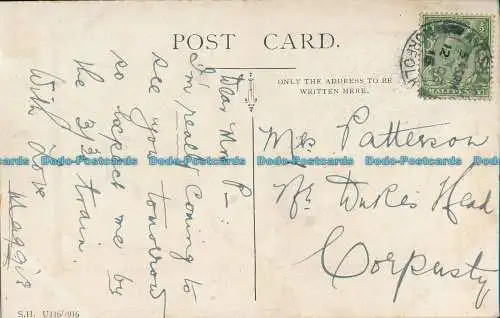 POST CARD.
ONLY THE ADDRESS TO BE
WRITTEN HERE.
Dear Mrs P—:
I'm really coming to
see you tomorrow
so expect me by
the 3/3 train.
With love
Maggie
Mrs Patterson
Nr. Dukes Head
Corpusty
HALFPENNY
NORFOLK
12
S.H. U116/1916
Postcards Postcards Postcards Postcards
Postcards Postcards Postcards Postcards